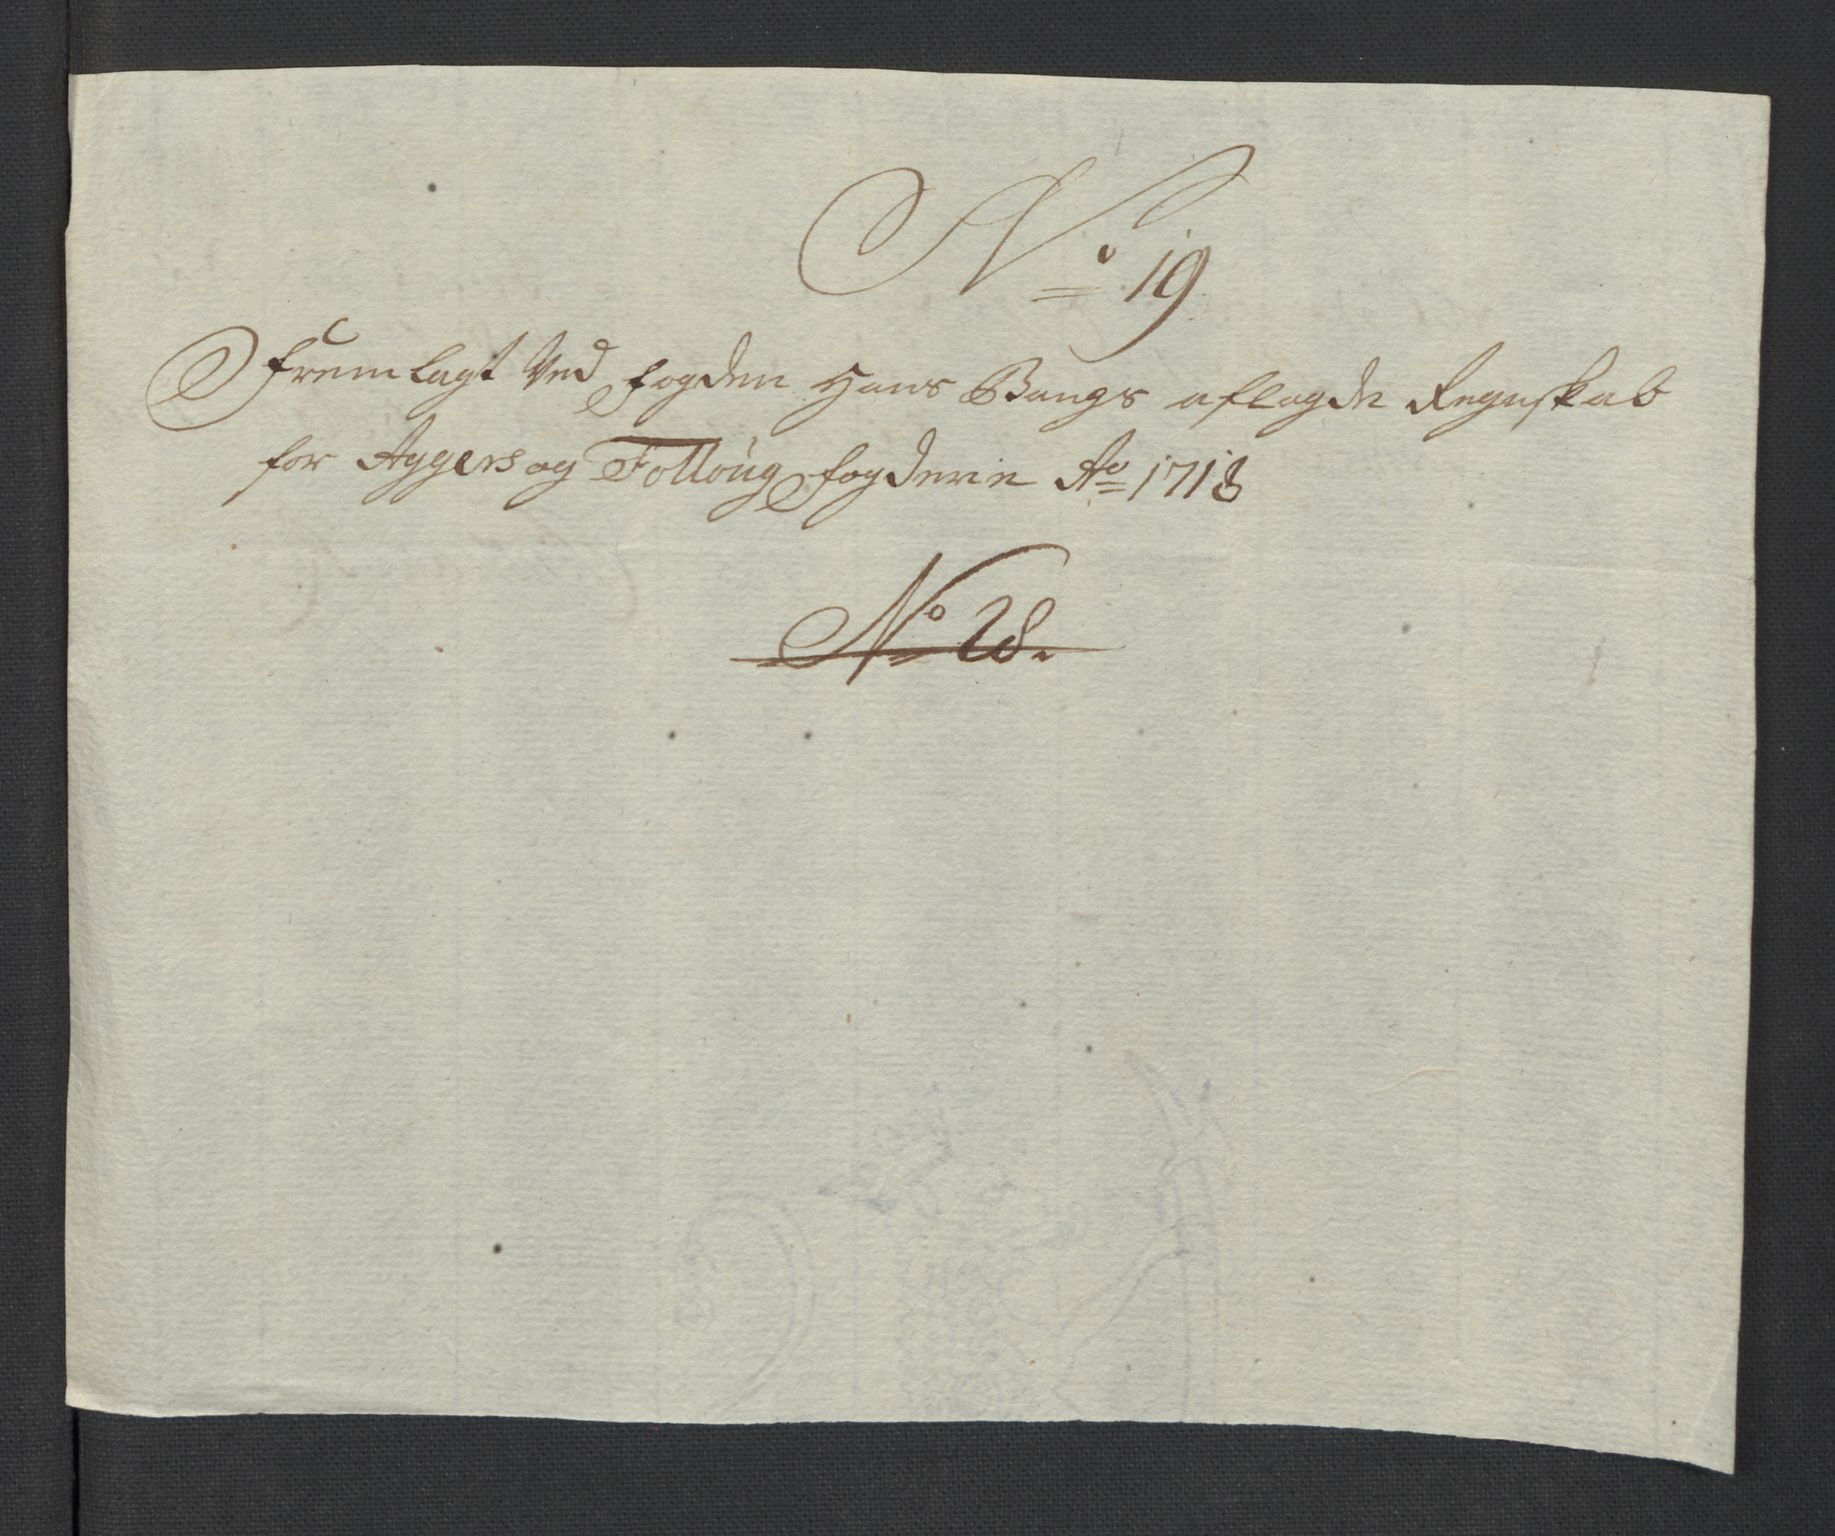 No 19
Fremlagt Ved fogden Hans Bangs aflagde Regnskab
for Aggers og Folloug fogderie Ao 1718
No 28.